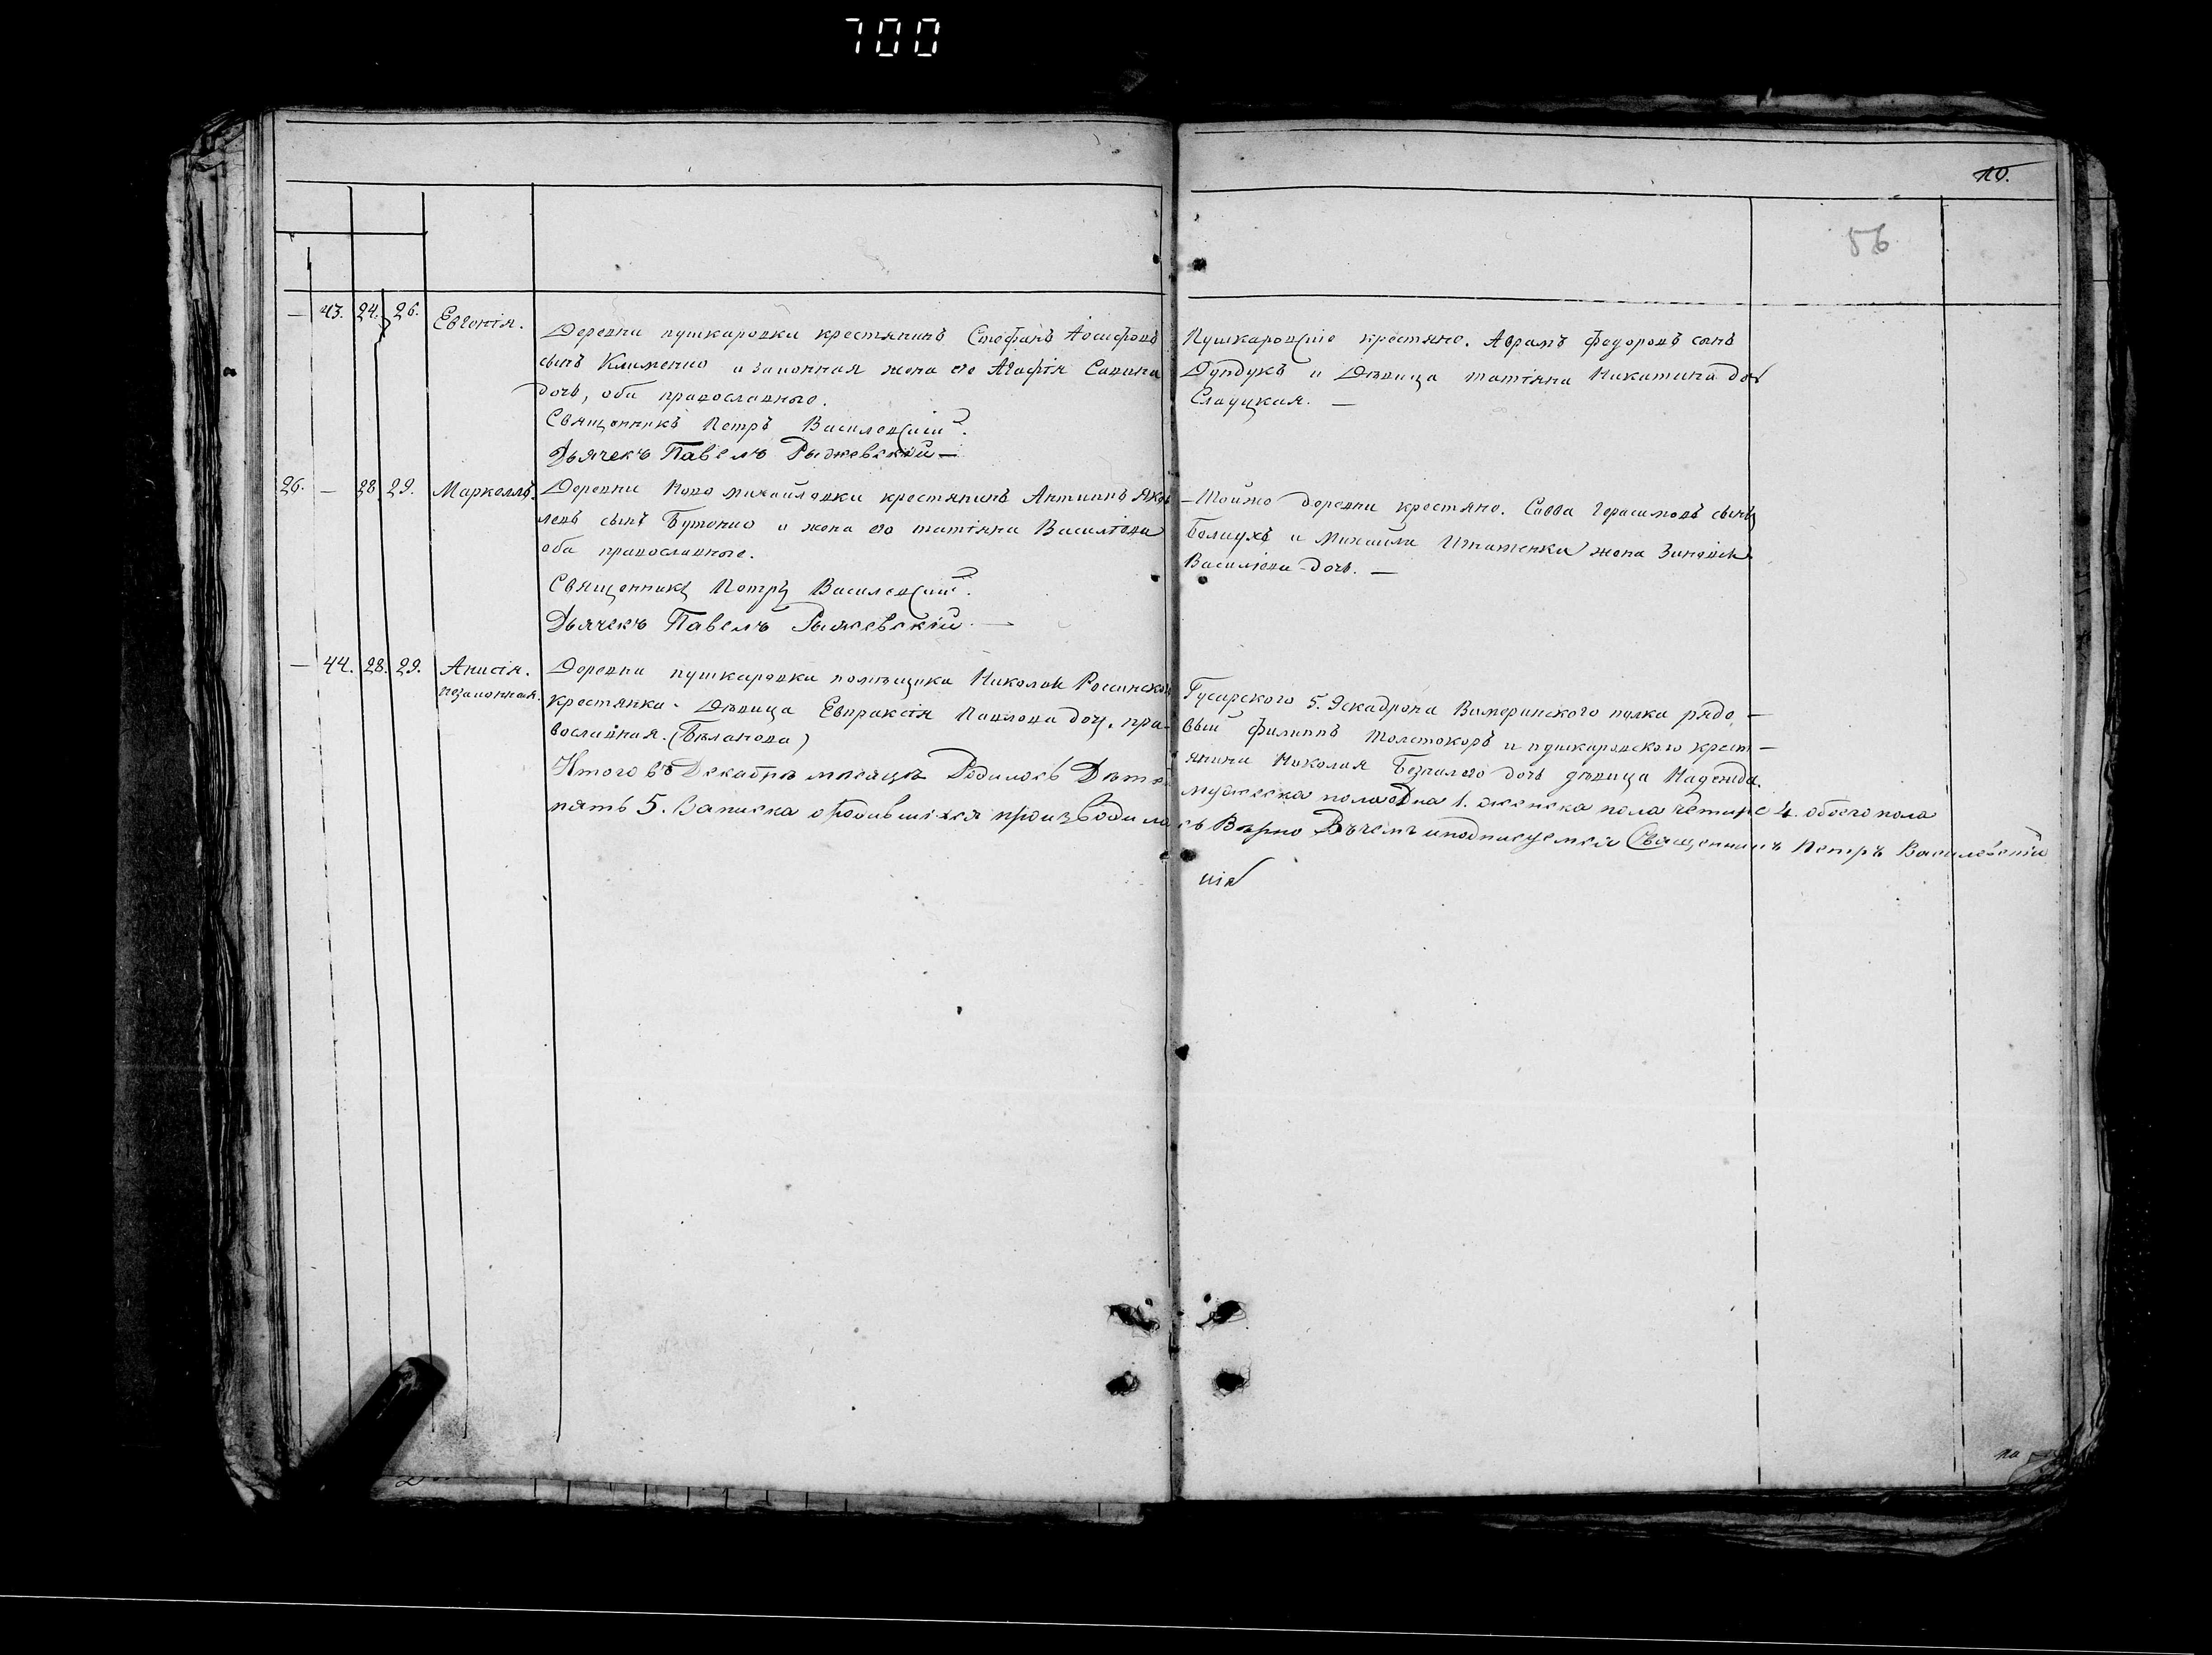 700
10.
56
— 43. 24. 26. Евгенія.
Деревни пушкаровки крестянинъ Стефанъ Іосифовъ
сынъ Клименко и законная жена его Агафія Савина
дочь, оба православные.
Священникъ Петръ Василевскій.
Дьячекъ Павелъ Рыжевскій —
Пушкаровскіе крестяне. Аврамъ федоровъ сынъ
Дундукъ и Дѣвица татіяна Никитина доч
Слауцкая. —
26. — 28 29. Маркеллъ.
Деревни Ново михайловки крестянинъ Антипъ Яков
левъ сынъ Бутенко и жена его татіяна Василіева
оба православные.
Священникъ Петръ Василевскій.
Дьячекъ Павелъ Рыжевскій. —
— Тойже деревни крестяне. Савва Герасимовъ сынъ
и Михаила Игнатенка жена
Василіева дочь. —
— 44. 28. 29. Анисія.
незаконная.
Деревни пушкаровки помѣщика Николая
крестянка. Дѣвица Евпраксія Павлова дочь, пра-
вославная. (Бѣланова)
Гусарского 5. Эскадрона полка рядо —
вый филиппъ Толстокоръ и пушкаровского крест —
янина Николая дочь дѣвица Надежда.
Итого въ Декабрѣ месяцѣ Родилось Дѣте
мужеска пола одна 1. женска пола четыре 4. обоего пола
пять 5. Записка о родившихся производила
сь Вѣрно Въ чемъ и подписуемся Священникъ Петръ Василевскій